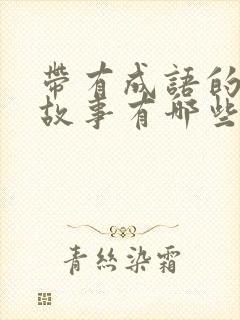 帶有成語的
故事有哪些
青絲染霜